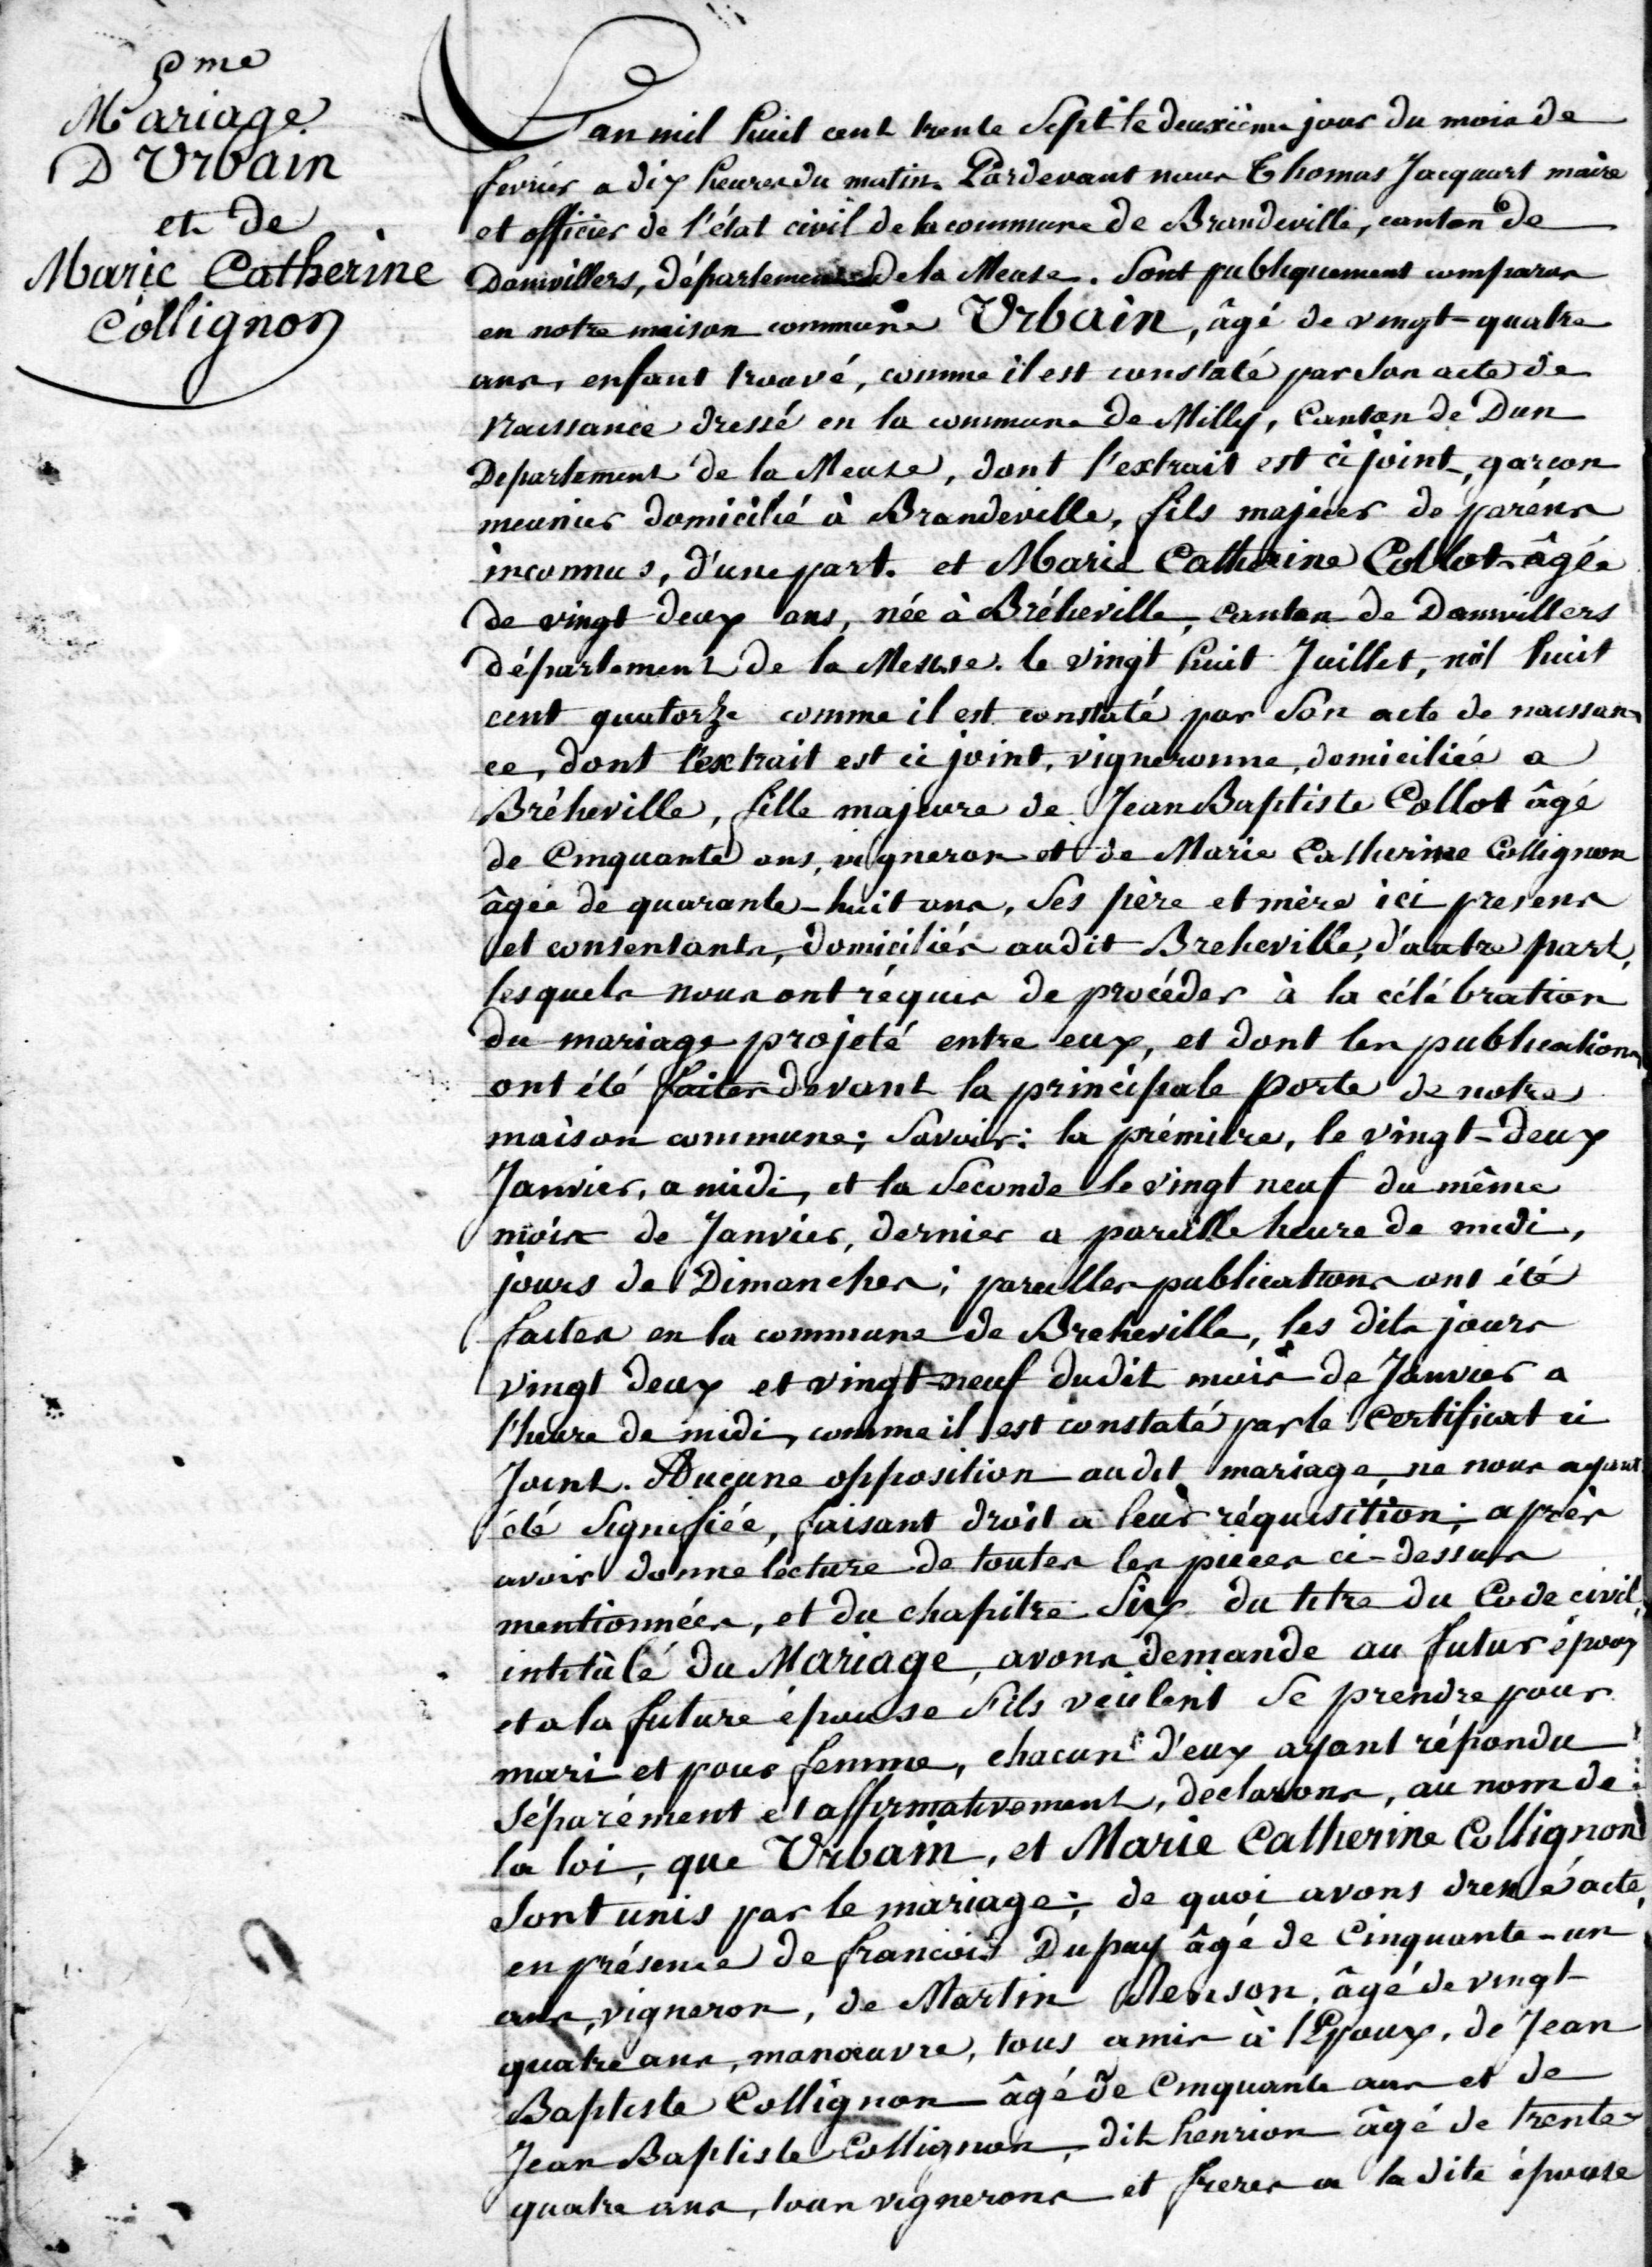 5me
Mariage
D'Urbain
et de
Marie Catherine
Collignon
L'an mil huit cent trente Sept le deuxième jour du mois de
fevrier a dix heures du matin. Pardevant nous Thomas Jacquart maire
et officier de l'état civil de la commune de Brandeville, canton de
Damvillers, département de la Meuse. Sont publiquement comparus
en notre maison commune Urbain, âgé de vingt-quatre
ans, enfant trouvé, comme il est constaté par son acte de
naissance dressé en la commune de Milly, Canton de Dun
Departement de la Meuse, dont l'extrait est ci joint, garçon
meunier domicilié à Brandeville, fils majeur de parens
inconnus, d'une part. et Marie Catherine Collot âgée
de vingt deux ans, née à Bréheville, canton de Damvillers
département de la Meuse. le vingt huit Juillet, mil huit
cent quatorze comme il est constaté par Son acte de naissan
ce, dont l'extrait est ci joint, vigneronne, domiciliée a
Bréheville, fille majeure de Jean Baptiste Collot âgé
de Cinquante ans, vigneron et de Marie Catherine Collignon
âgée de quarante-huit ans, Ses père et mère ici presens
et consentants, domiciliés audit Breheville, d'autre part,
lesquels nous ont réquis de procéder à la célébration
du mariage projeté entre eux, et dont les publications
ont été faites devant la principale porte de notre
maison commune; Savoir: la prémière, le vingt-deux
Janvier, a midi, et la Seconde le vingt neuf du même
mois de Janvier, dernier a pareille heure de midi,
jours de Dimanches; pareilles publications ont été
faites en la commune de Breheville, les dits jours
vingt deux et vingt-neuf dudit mois de Janvier a
l'heure de midi, comme il est constaté par le Certificat ci
Joint. Aucune opposition audit mariage, ne nous ayant
été Signifiée, faisant droit a leur réquisition; après
avoir donne lecture de toutes les pièces ci-dessus
mentionnées, et du chapitre Six du titre du Code civil,
intitulé du Mariage, avons demande au futur époux
et a la future épouse S'ils veulent Se prendre pour
mari et pour femme, chacun d'eux ayant répondu
Séparément et affirmativement, declarons, au nom de
la loi, que Urbain, et Marie Catherine Collignon
Sont unis par le mariage; de quoi avons dressé acte,
en présence de francois Dupuy âgé de Cinquante-un
ans, vigneron, de Martin Renson, âgé de vingt-
quatre ans, manœuvre, tous amis à l'Epoux, de Jean
Baptiste Collignon âgé de Cinquante ans et de
Jean Baptiste Collignon, dit henrion âgé de trente
quatre ans, tous vignerons et freres a la dite épouse